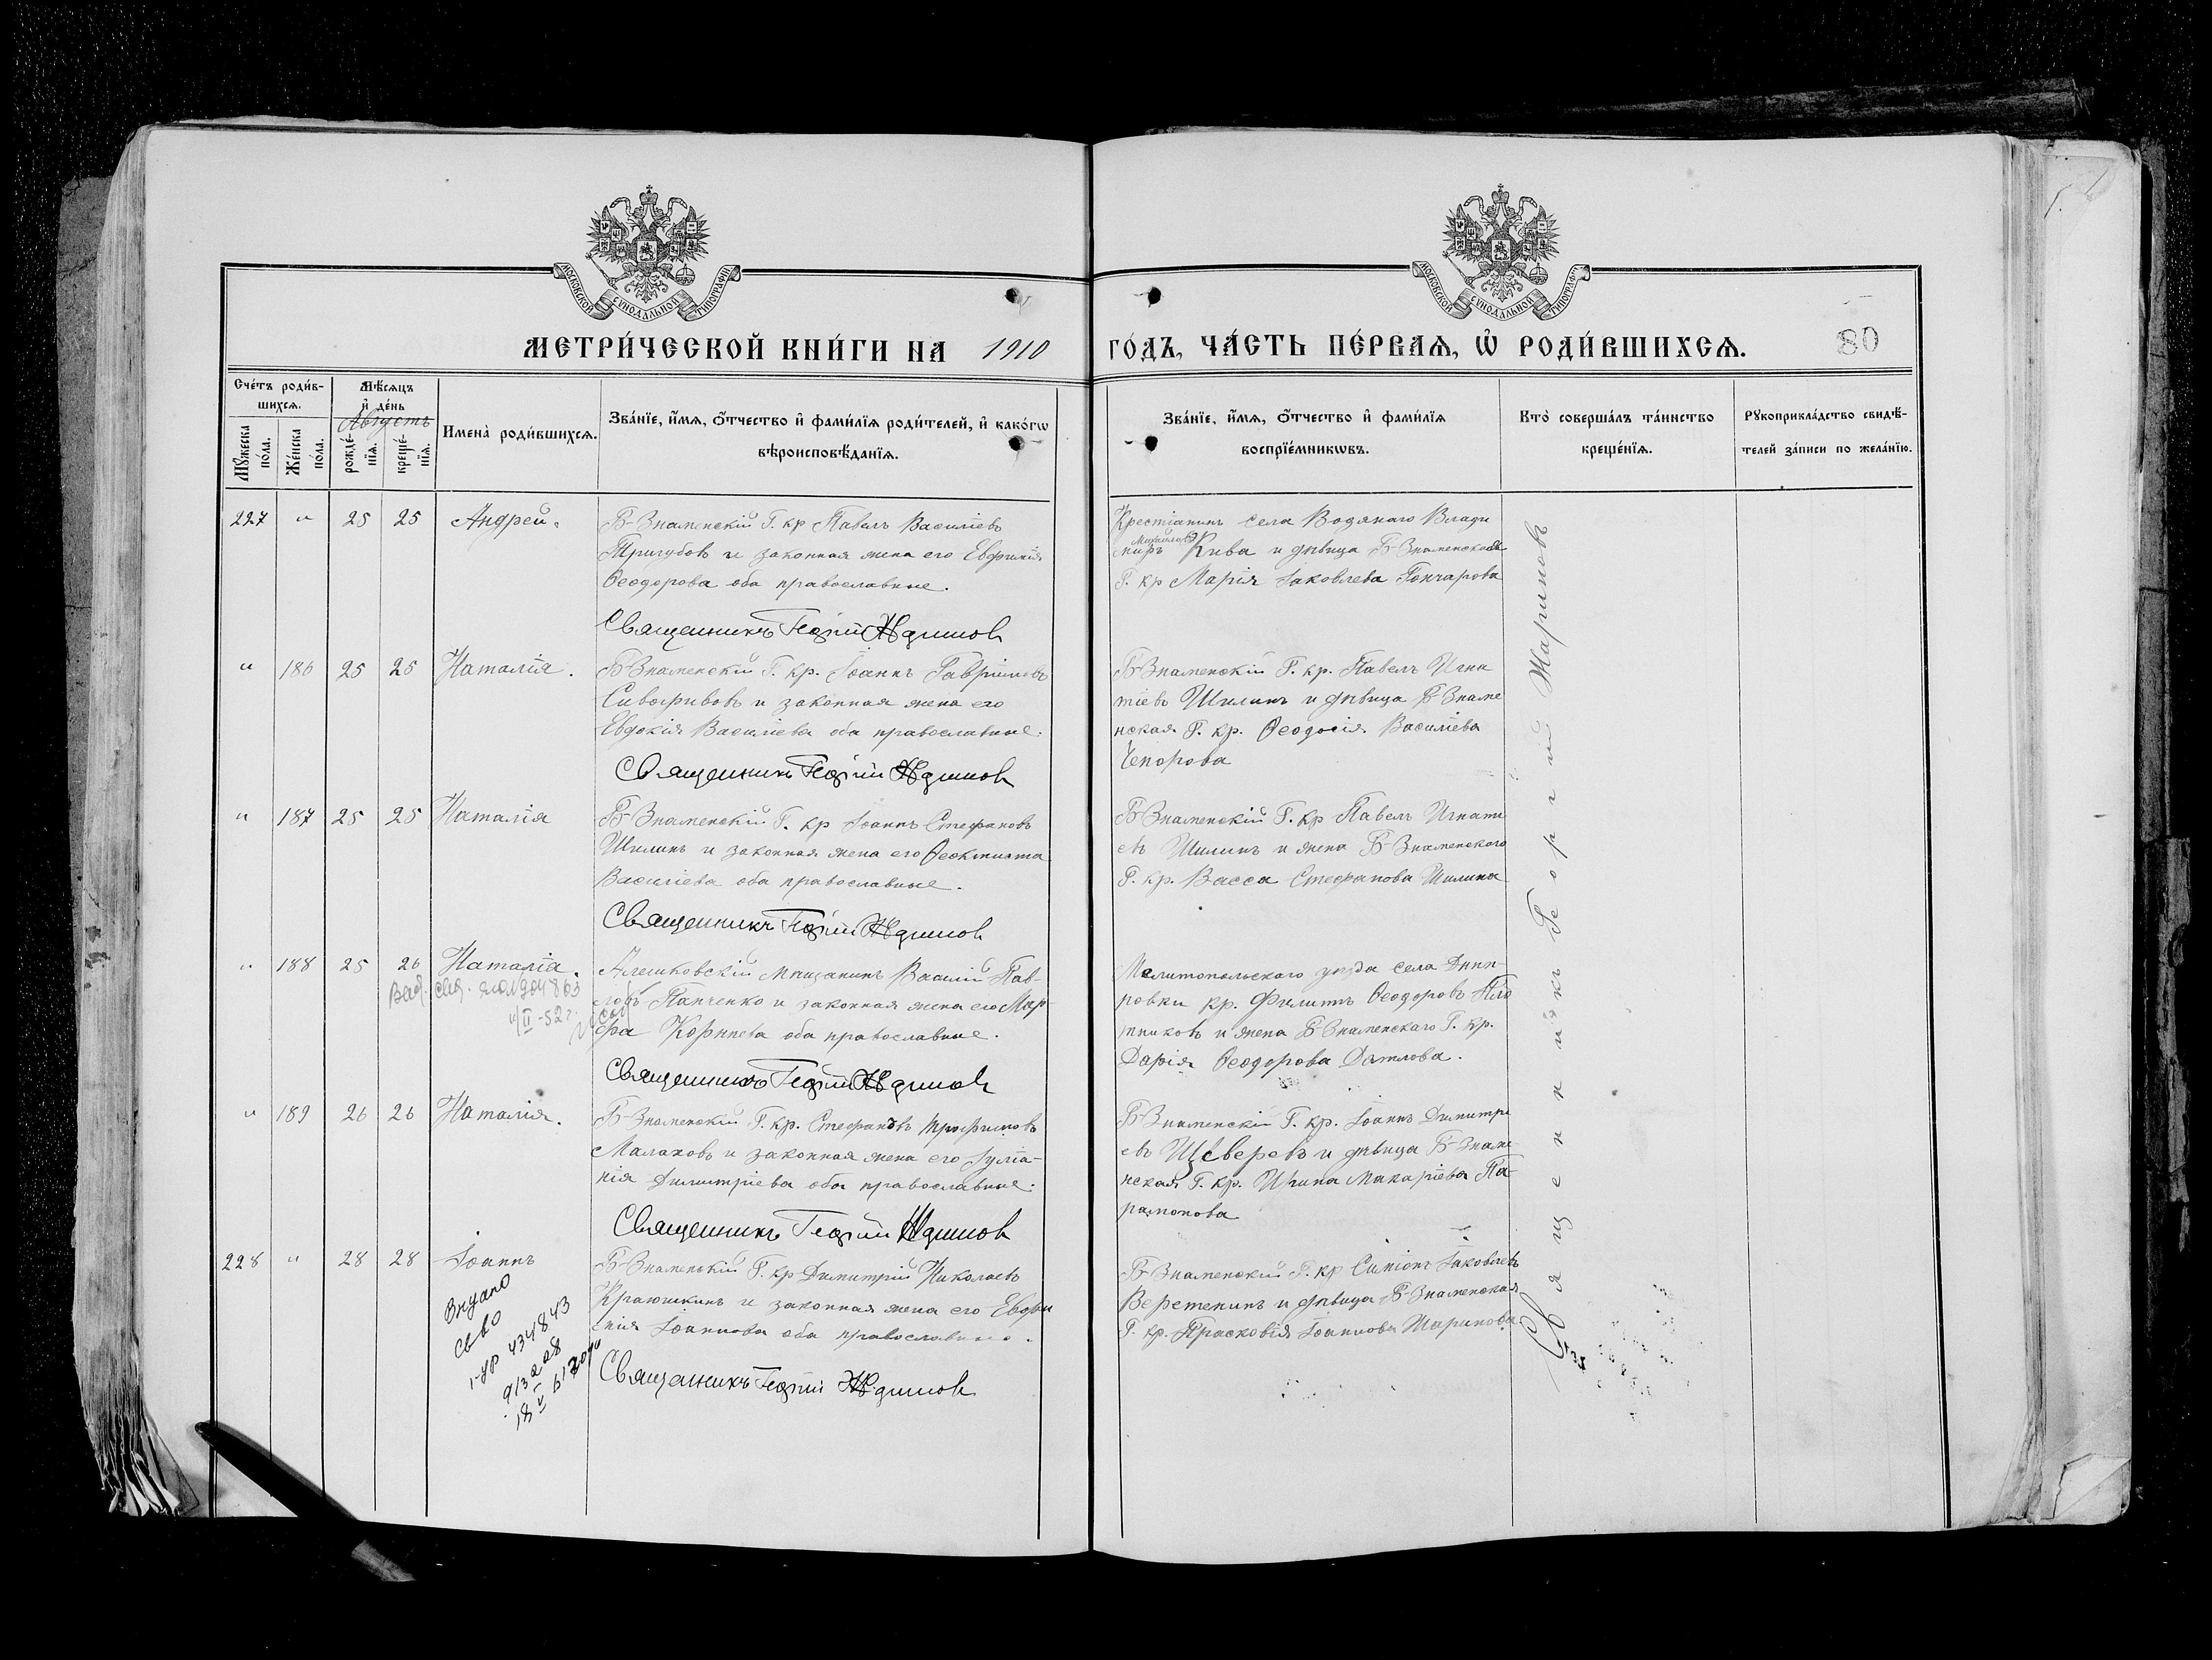 МОСКОВСКОЙ СѴНОДАЛЬНОЙ ТИПОГРАФІИ
МОСКОВСКОЙ СѴНОДАЛЬНОЙ ТИПОГРАФІИ
МЕТРИ́ЧЕСКОЙ КНИ́ГИ НА 1910 ГО́ДЪ, ЧА́СТЬ ПЕ́РВАѦ, Ѡ҆ РОДИ́ВШИХСѦ.
80
Сче́тъ роди́в-
шихсѧ.
Мꙋ́жеска по́ла.
Же́нска по́ла.
Мѣ́сѧцъ
и҆ де́нь
Августъ
рожде́-
нїѧ.
креще́-
нїѧ.
Имена̀ роди́вшихсѧ.
Зва́нїе, и҆́мѧ, ѻ҆́тчество и҆ фами́лїѧ роди́телей, и҆ како́гѡ
вѣроисповѣ́данїѧ.
Зва́нїе, и҆́мѧ, ѻ҆́тчество и҆ фами́лїѧ
воспрїе́мникѡвъ.
Кто̀ соверша́лъ та́инство
креще́нїѧ.
Рꙋкоприкла́дство свидѣ́-
телей за́писи по жела́нїю.
227 " 25 25 Андрей.
Б-Знаменскій Г. кр Павелъ Василіевъ
Тригубовъ и законная жена его Евфимія
Ѳеодорова оба православные.
Священникъ Георгій
Крестіанинъ села Водянаго Влади
миръ Кива и дѣвица Б-Знаменская
Г. кр Марія Іаковлева Гончарова
" 186 25 25 Наталія.
Б-Знаменскій Г. кр. Іоаннъ Гавріиловъ
Сивогривовъ и законная жена его
Евдокія Василіева оба православные.
Священникъ Георгій
Б-Знаменскій Г. кр. Павелъ Игна
тіевъ Шилинъ и дѣвица Б-Знаме
нская Г. кр. Ѳеодосія Василіева
Чепорова
" 187 25 25 Наталія
Б-Знаменскій Г. кр Іоаннъ Стефановъ
Шилинъ и законная жена его Ѳеоктиста
Василіева оба православные.
Священникъ Георгій
Б-Знаменскій Г. кр Павелъ Игнати
евъ Шилинъ и жена Б-Знаменскаго
Г. кр. Васса Стефанова Шилина
" 188 25 26 Наталія.
Алешковскій мѣщанинъ Василій Пав-
ловъ Панченко и законная жена его Мар-
фа Корнѣева оба православные.
Священникъ Георгій
Мелитопольскаго уѣзда села Днѣп-
ровки кр. Филипъ Ѳеодоровъ Пло
тниковъ и жена Б-Знаменскаго Г. кр.
Дарія Ѳеодорова Датлова.
" 189 26 26 Наталія.
Б-Знаменскій Г. кр. Стефановъ Трофимовъ
Малаховъ и законная жена его Іуліа-
нія Димитріева оба православные.
Священникъ Георгій
Б-Знаменскій Г. кр. Іоаннъ Димитрі
евъ Щеверевъ и дѣвица Б-Знаме
нская Г. кр. Ирина Макаріева Па-
рамонова
228 " 28 28 Іоаннъ
Б-Знаменскій Г. кр Димитрій Николаевъ
Краюшкинъ и законная жена его Евфи
мія Іоаннова оба православные.
Священникъ Георгій
Б-Знаменскій Г. кр Симеонъ Іаковлевъ
Веретенинъ и дѣвица Б-Знаменская
Г. кр. Прасковія Іоаннова Шарипова
Священникъ Георгій